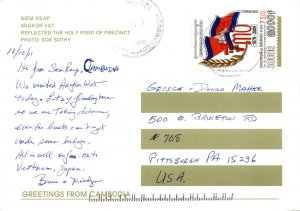 SIEM REAP
ANGKOR VAT
REFLECTED THE HOLY POND OF PRECINCT
PHOTO: SOK SOTHY
10/10/11
Hi from Siem Reap, CAMBODIA
We visited Angkor Wat
today. Lots of flooding here
so we are taking
even the boats can't get
under some bridges.
All is well so far on to
Vietnam, Japan.
Brian + Marilyn
GREETINGS FROM CAMBODIA
GEORGE + DONNA MAHER
500 E. BRUCETON RD
# 708
PITTSBURGH PA 15236
U.S.A.